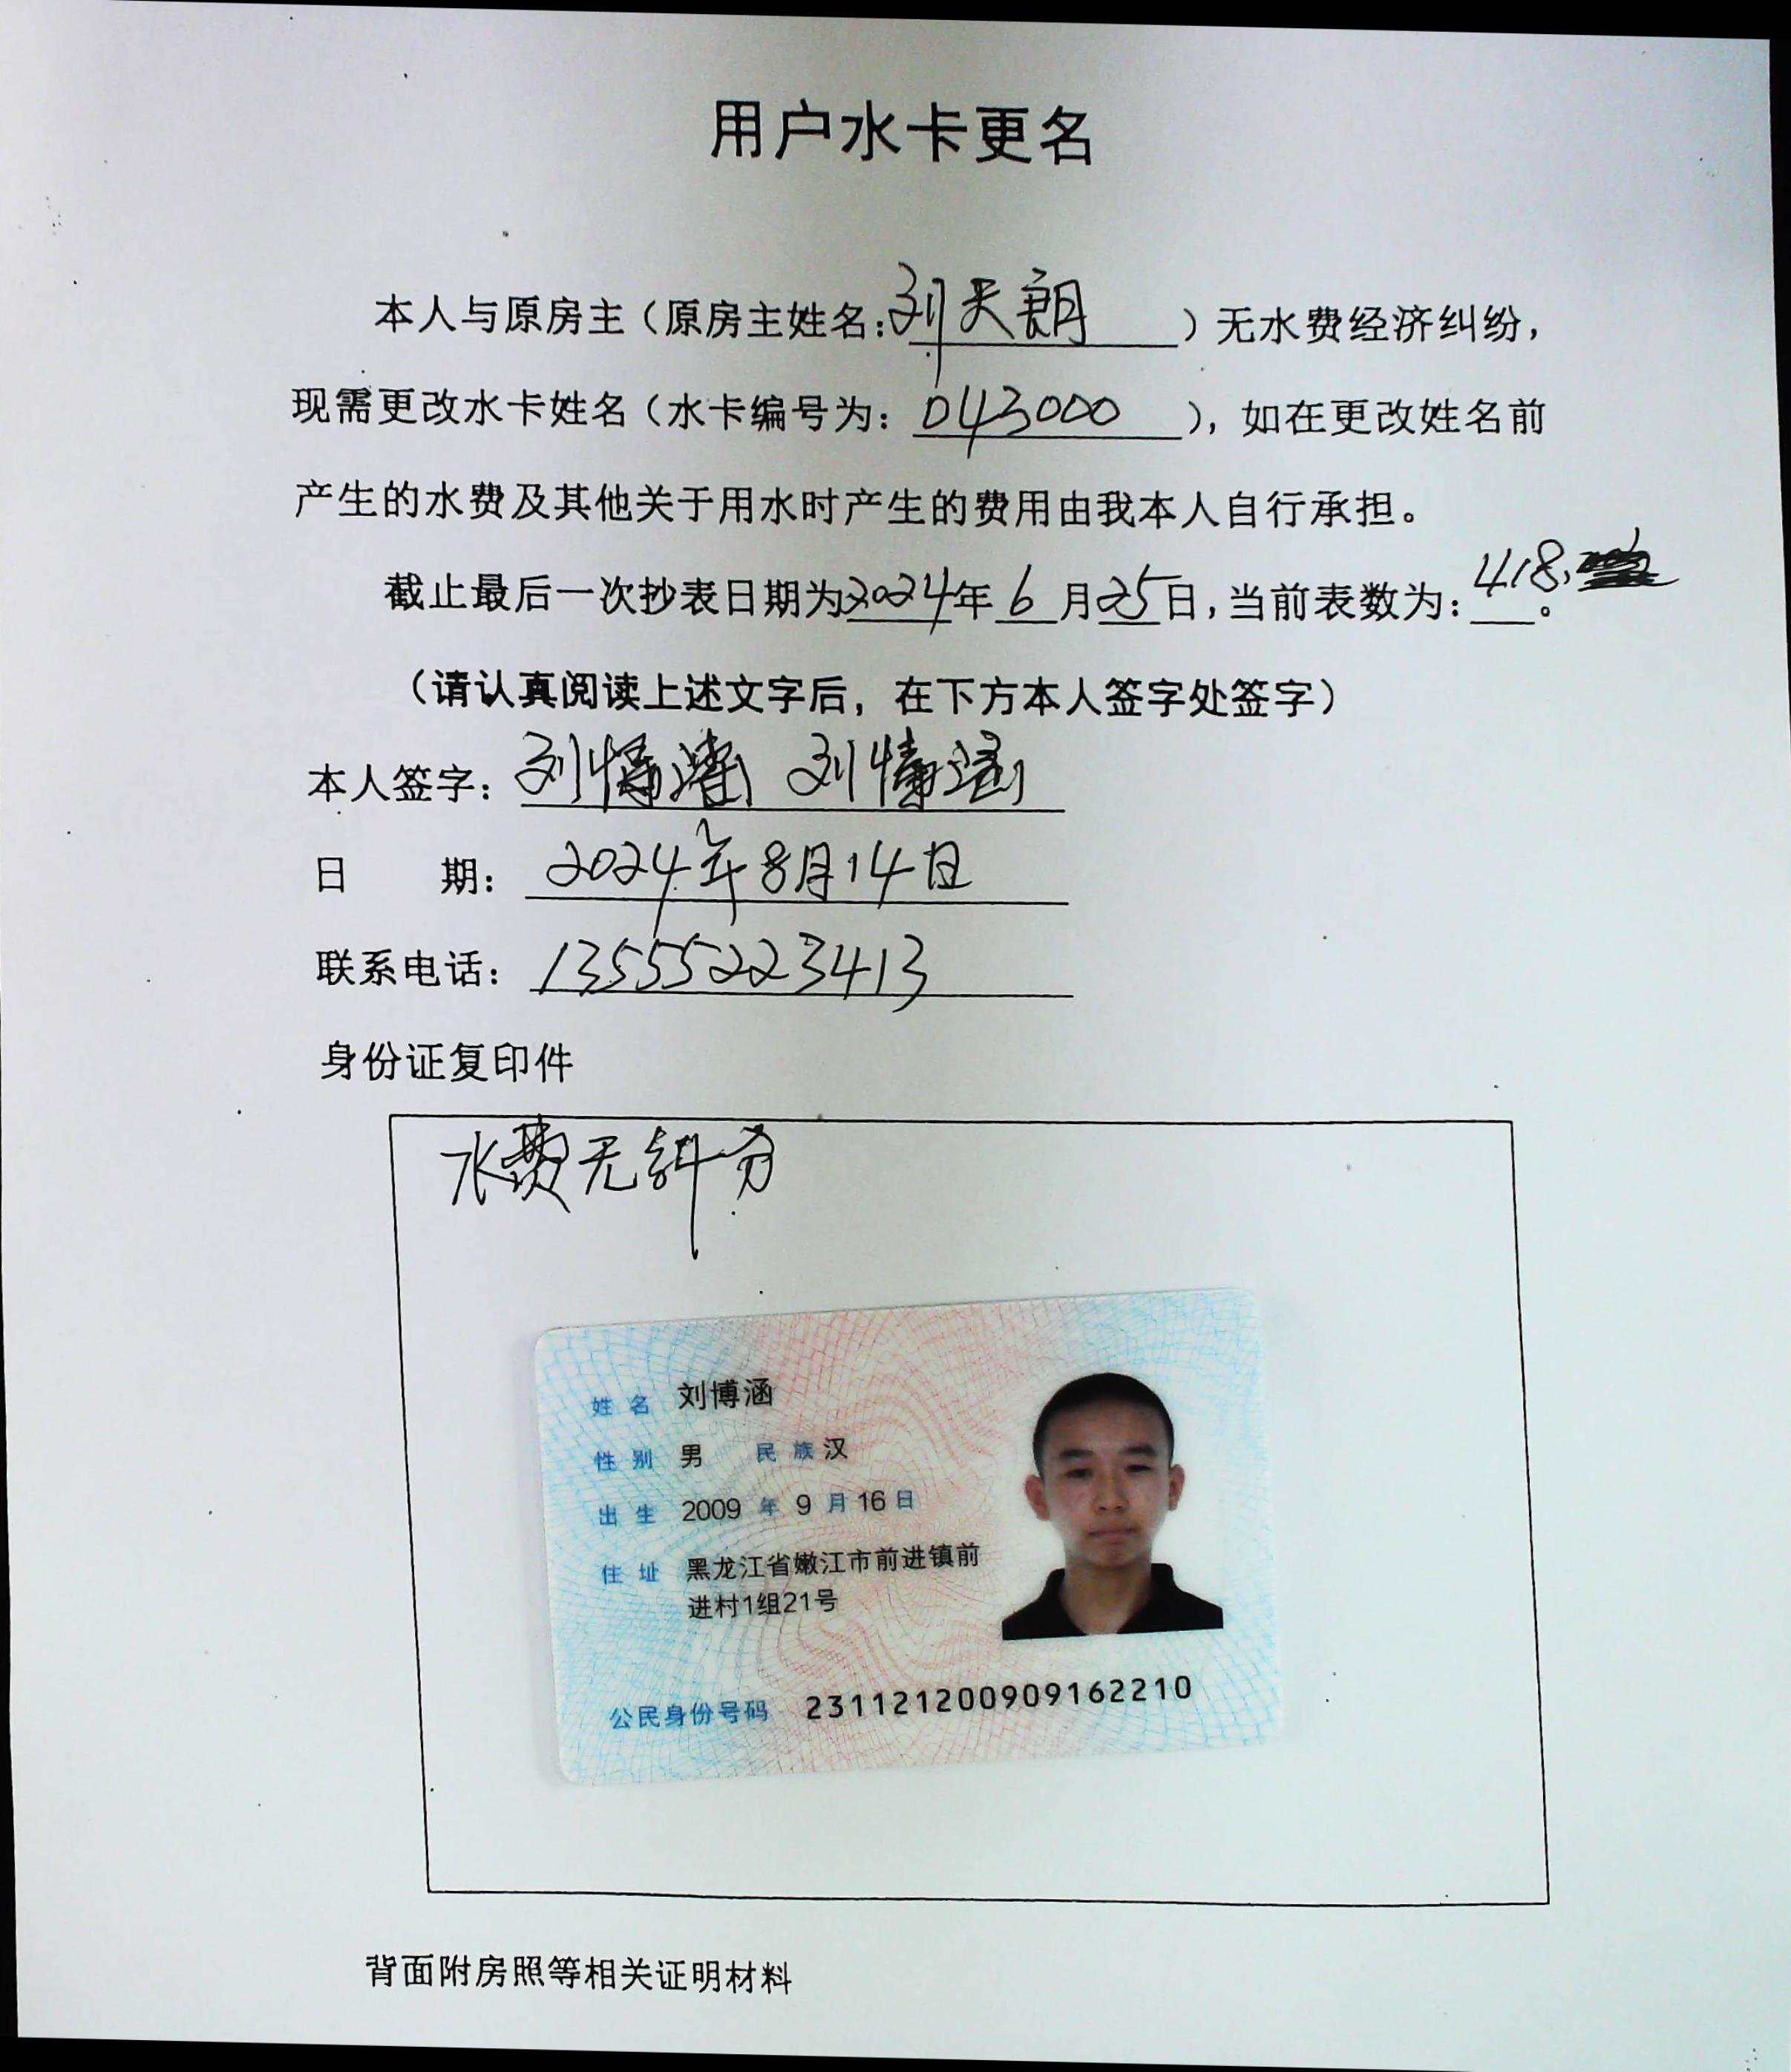 用户水卡更名
本人与原房主（原房主姓名:刘天朗）无水费经济纠纷，
现需更改水卡姓名（水卡编号为：043000），如在更改姓名前
产生的水费及其他关于用水时产生的费用由我本人自行承担。
截止最后一次抄表日期为2024年6月25日,当前表数为:418。
（请认真阅读上述文字后，在下方本人签字处签字）
本人签字：刘博涵
日 期：2024年8月14日
联系电话：13555223413
身份证复印件
水费无纠分
姓名 刘博涵
性别 男 民族 汉
出生 2009 年 9 月 16 日
住址 黑龙江省嫩江市前进镇前
进村1组21号
公民身份号码 231121200909162210
背面附房照等相关证明材料